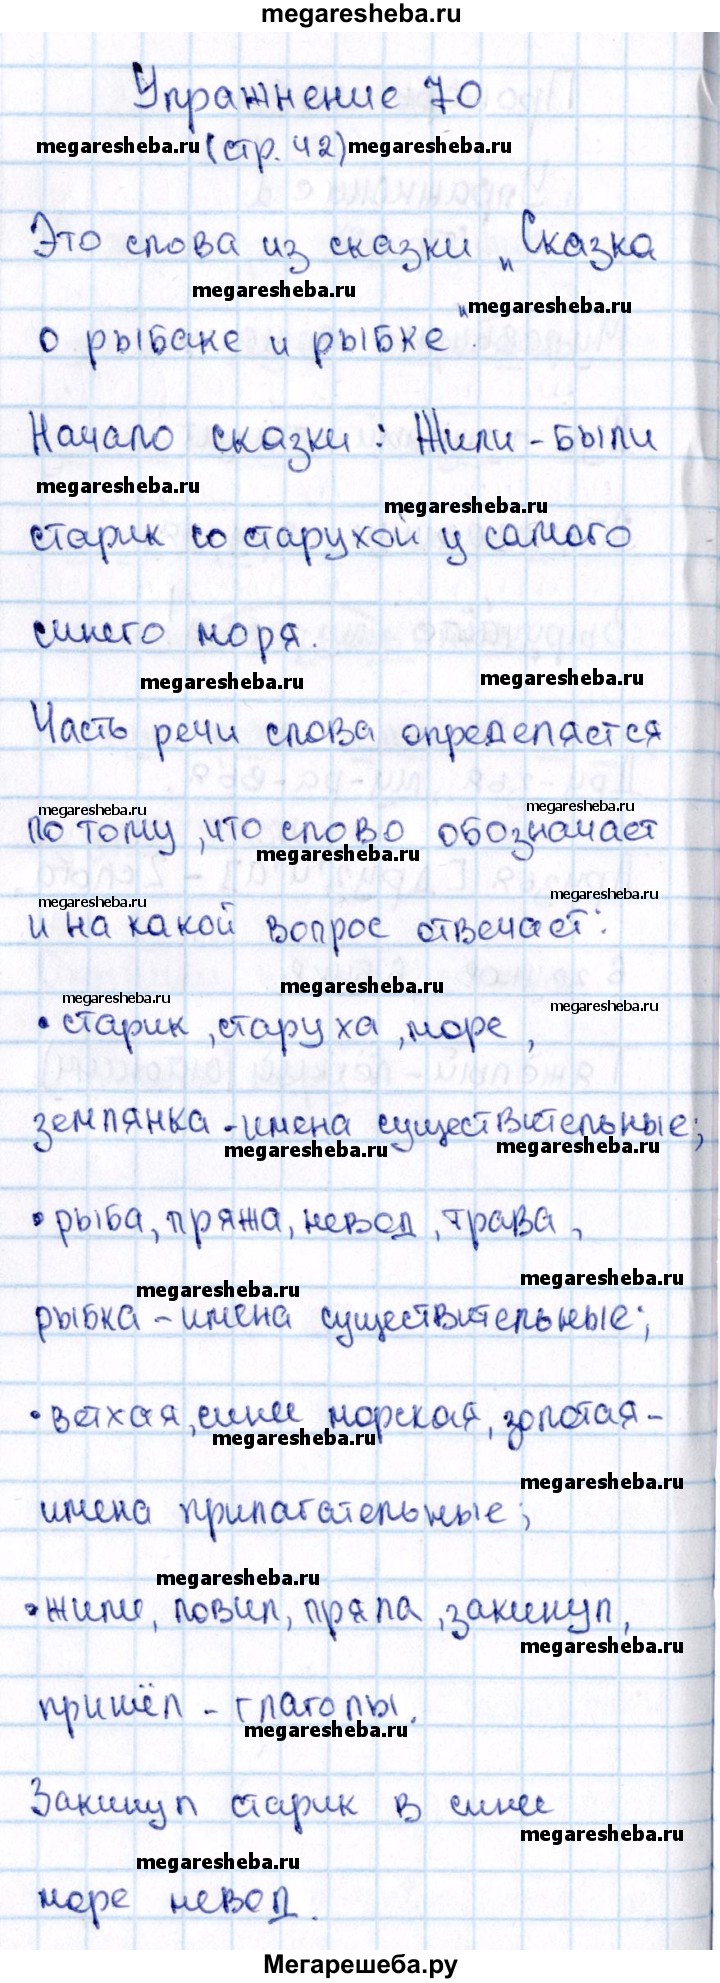 megaresheba.ru
Упражнение 70
megaresheba.ru (стр. 42) megaresheba.ru
Это слова из сказки „Сказка
megaresheba.ru megaresheba.ru
о рыбаке и рыбке“.
Начало сказки: Жили-были
megaresheba.ru megaresheba.ru
старик со старухой у самого
синего моря.
megaresheba.ru megaresheba.ru
Часть речи слова определяется
megaresheba.ru megaresheba.ru
по тому, что слово обозначает
megaresheba.ru
megaresheba.ru megaresheba.ru
и на какой вопрос отвечает:
megaresheba.ru
megaresheba.ru megaresheba.ru
• старик, старуха, море,
землянка - имена существительные;
megaresheba.ru megaresheba.ru
• рыба, пряжа, невод, трава,
megaresheba.ru megaresheba.ru
рыбка - имена существительные;
• ветхая, синее морская, золотая -
megaresheba.ru megaresheba.ru
имена прилагательные;
megaresheba.ru
• жили, ловил, пряла, закинул,
megaresheba.ru
пришёл - глаголы.
megaresheba.ru
Закинул старик в синее
megaresheba.ru megaresheba.ru
море невод.
Мегарешеба.ру